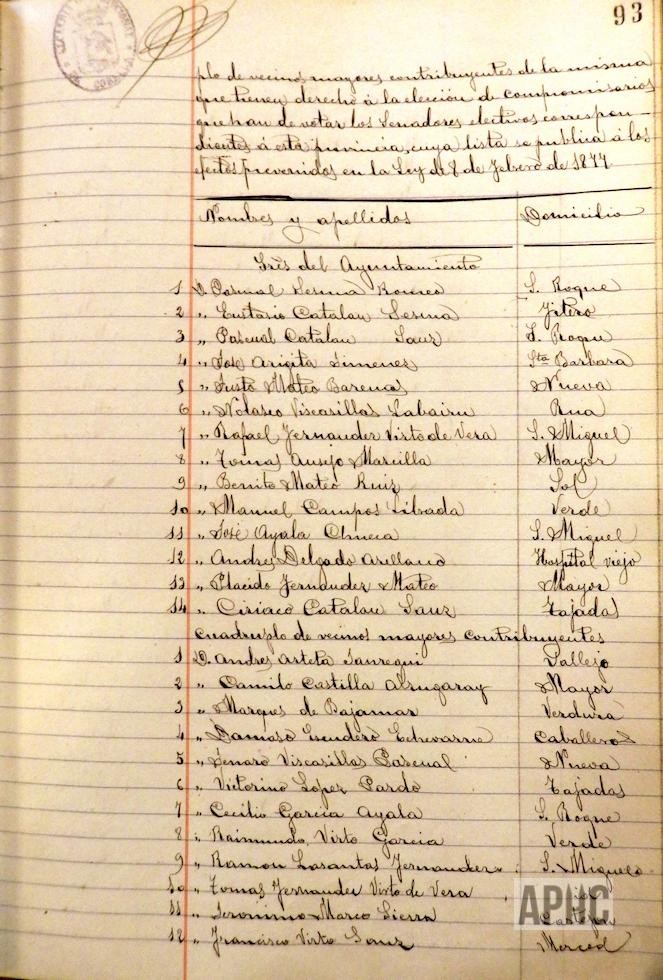 93
plo de vecinos mayores contribuyentes de la misma
que tienen derecho á la elección de compromisarios
que han de votar los Senadores electivos correspon-
dientes á esta provincia, cuya lista se publica á los
efectos prevenidos en la Ley de 8 de Febrero de 1877
Nombres y apellidos Domicilio
Sres del Ayuntamiento
1 D. Pascual Lesma Romeo S. Roque
2 " Eustasio Catalan Lesma Fitero
3 " Pascual Catalan Sauz S. Roque
4 " José Arigita Simenes Sta Barbara
5 " Justo Mateo Barenas Nueva
6 " Nolasco Viscasillas Labairu Rua
7 " Rafael Fernandez Virto de Vera S. Miguel
8 " Tomas Ausejo Marcilla Mayor
9 " Benito Mateo Ruiz Sol
10 " Manuel Campos Librada Verde
11 " José Ayala Chueca S. Miguel
12 " Andres Delgado Arellano Hospital viejo
13 " Placido Fernandez Mateo Mayor
14 " Ciriaco Catalan Sauz Tajadas
Cuadruplo de vecinos mayores contribuyentes
1 D. Andres Arteta Jauregui Vallejo
2 " Camilo Castilla Alzugaray Mayor
3 " Marques de Bajamar Verdura
4 " Damaso Escudero Echevarne Caballeros
5 " Jenaro Viscasillas Pascual Nueva
6 " Victorino Lopez Pardo Tajadas
7 " Cecilio Garcia Ayala S. Roque
8 " Raimundo Virto Garcia Verde
9 " Ramon Lasantas Fernandez S. Miguel
10 " Tomas Fernandez Virto de Vera
11 " Jeronimo Marco Sierra Castejon
12 " Francisco Virto Sauz Merced
APHC